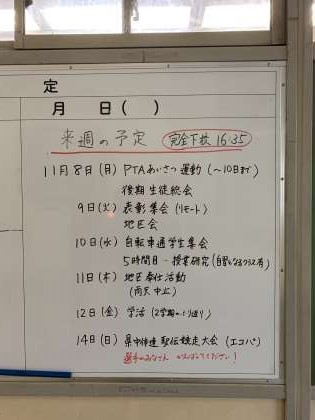 定
月 日( )
来週の予定 完全下校 16:35
11月8日(月) PTAあいさつ運動 (~10日まで)
後期生徒総会
9日(火) 表彰集会 (リモート)
地区会
10日(水) 自転車通学生集会
5時間目-授業研究(自習になるクラス有)
11日(木) 地区奉仕活動
(雨天中止)
12日(金) 学活 (2学期のふり返り)
14日(日) 県中体連 駅伝競走大会 (エコパ)
選手のみなさん がんばってください!